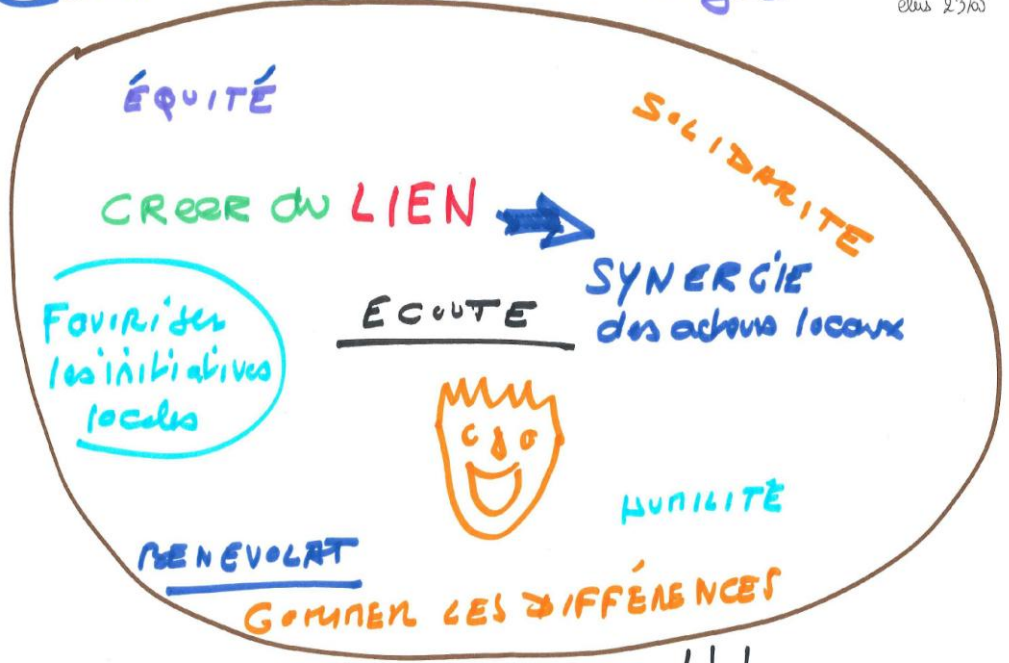 élus 23/03
ÉQUITÉ
SOLIDARITE
CREER du LIEN
SYNERGIE
des acteurs locaux
ECOUTE
Favoriser
les initiatives
locales
HUMILITÉ
BENEVOLAT
GOMMER LES DIFFÉRENCES